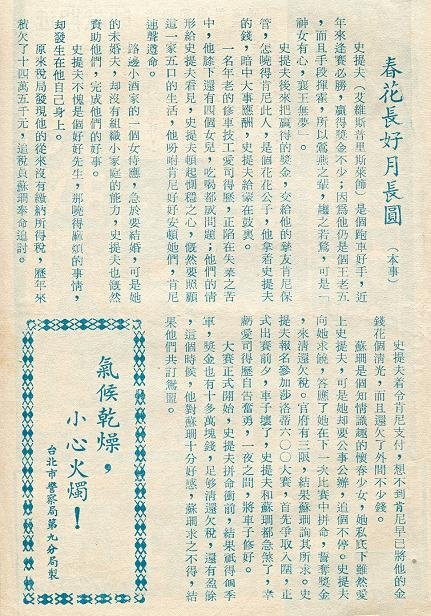 春花長好月長圓（本事）
史提夫（艾維斯普里斯萊飾）是個跑車好手，近
年來逢賽必勝，贏得獎金不少；因爲他仍是個王老五
，而且手段揮霍，所以鶯燕之輩，趨之若鶩，可是「
神女有心，襄王無夢」。
史提夫後來把贏得的獎金，交給他的摯友肯尼保
管，怎曉得肯尼此人，是個花花公子，他拿着史提夫
的錢，暗中大事應酬，史提夫給蒙在鼓裏。
一名年老的修車技工愛司得歷，正陷在失業之苦
中，他膝下還有四個女兒，吃喝都成問題；他們的情
形給史提夫看見，史提夫頓起惻穩之心，慨然要照顧
這一家五口的生活，他吩咐肯尼好好安頓她們，肯尼
連聲遵命。
路邊小酒家的一個女侍應，急於要結婚，可是她
的未婚夫，却沒有組織小家庭的能力，史提夫也慨然
資助他們，完成他們的好事。
史提夫不愧是個好好先生，那曉得麻煩的事情，
却發生在他自己身上。
原來稅局發現他的從來沒有繳納所得稅，歷年來
積欠了十四萬五千元，追稅員蘇珊奉命追討。
史提夫着令肯尼支付，想不到肯尼早已將他的金
錢花個清光，而且還欠了外間不少錢。
蘇珊是個知情識趣的懷春少女，她私底下雖然愛
上史提夫，可是她却要公事公辦，追個不停。史提夫
向她求饒，答應了她在下一次比賽中拼命，誓奪獎金
，來清還欠稅。官府有三限，結果蘇珊詢其所求。史
提夫報名參加莎洛蒂六〇〇大賽，首先爭取入閘，正
式出賽前夕，車子壞了，史提夫和蘇珊都急煞了，幸
虧愛司得歷自吿奮勇，一夜之間，將車子修好。
大賽正式開始，史提夫拼命衝前，結果祇得個季
軍，獎金也有十多萬塊錢，足够淸還欠稅，還有盈餘
，這個時候，他對蘇珊十分好感，蘇珊求之不得，結
果他們共訂鴛盟。
氣候乾燥，
小心火燭！
台北市警察局第九分局製